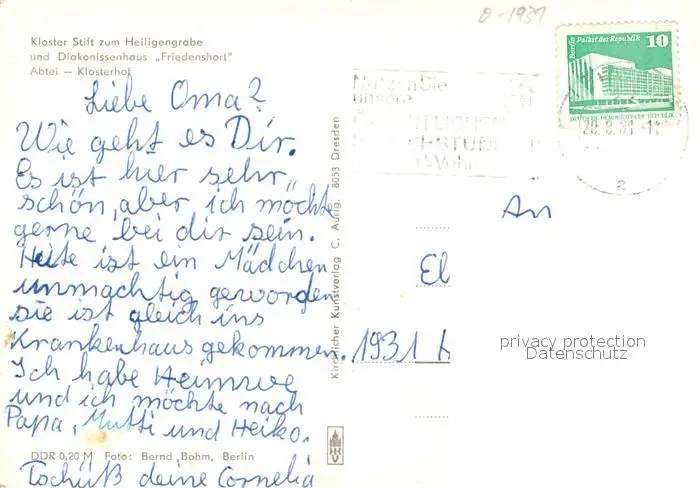 0-1931
Kloster Stift zum Heiligengrabe
und Diakonissenhaus „Friedenshort"
Abtei — Klosterhof
Liebe Oma?
Wie geht es Dir.
Es ist hier sehr
schön, aber ich möchte
gerne bei dir sein.
Heite ist ein Mädchen
unmachtig geworden
sie ist gleich ins
Krankenhaus gekommen.
Ich habe Heimwe
und ich möchte nach
Papa, Mutti und Heiko.
Tschüß deine Cornelia
DDR 0,20 M Foto: Bernd Bohm, Berlin
Kirchlicher Kunstverlag C. Aurig, 8053 Dresden
Nutzen Sie
unsere
Berlin Palast der Republik
10
DEUTSCHE DEMOKRATISCHE REPUBLIK
An
El
1931
privacy protection
Datenschutz